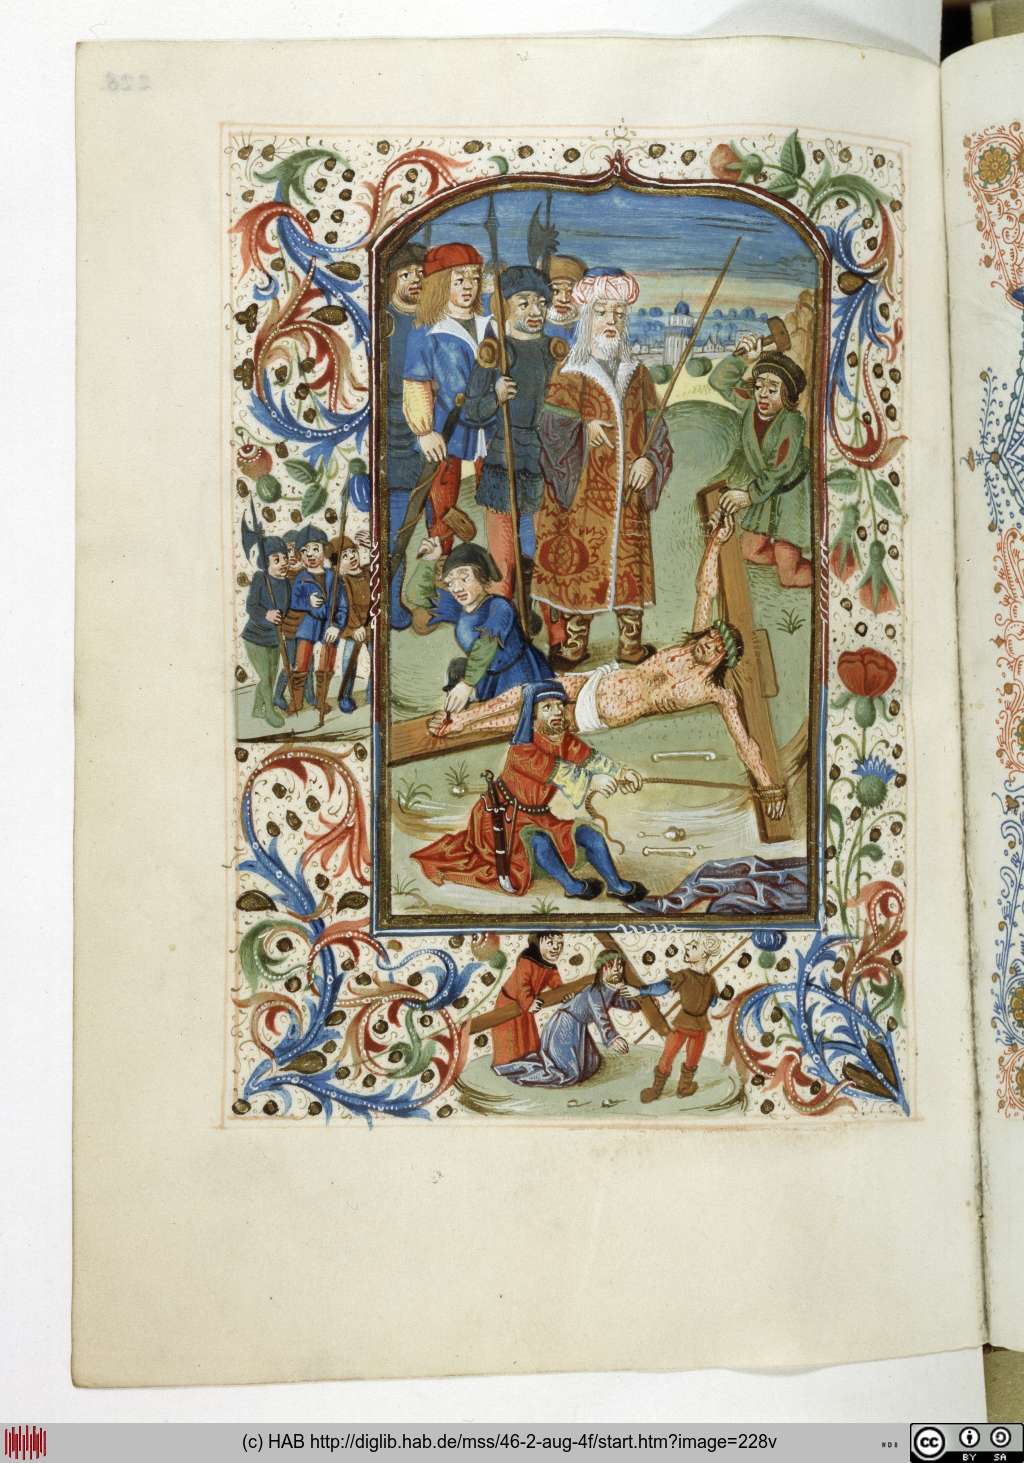 (c) HAB http://diglib.hab.de/mss/46-2-aug-4f/start.htm?image=228v
cc
BY SA